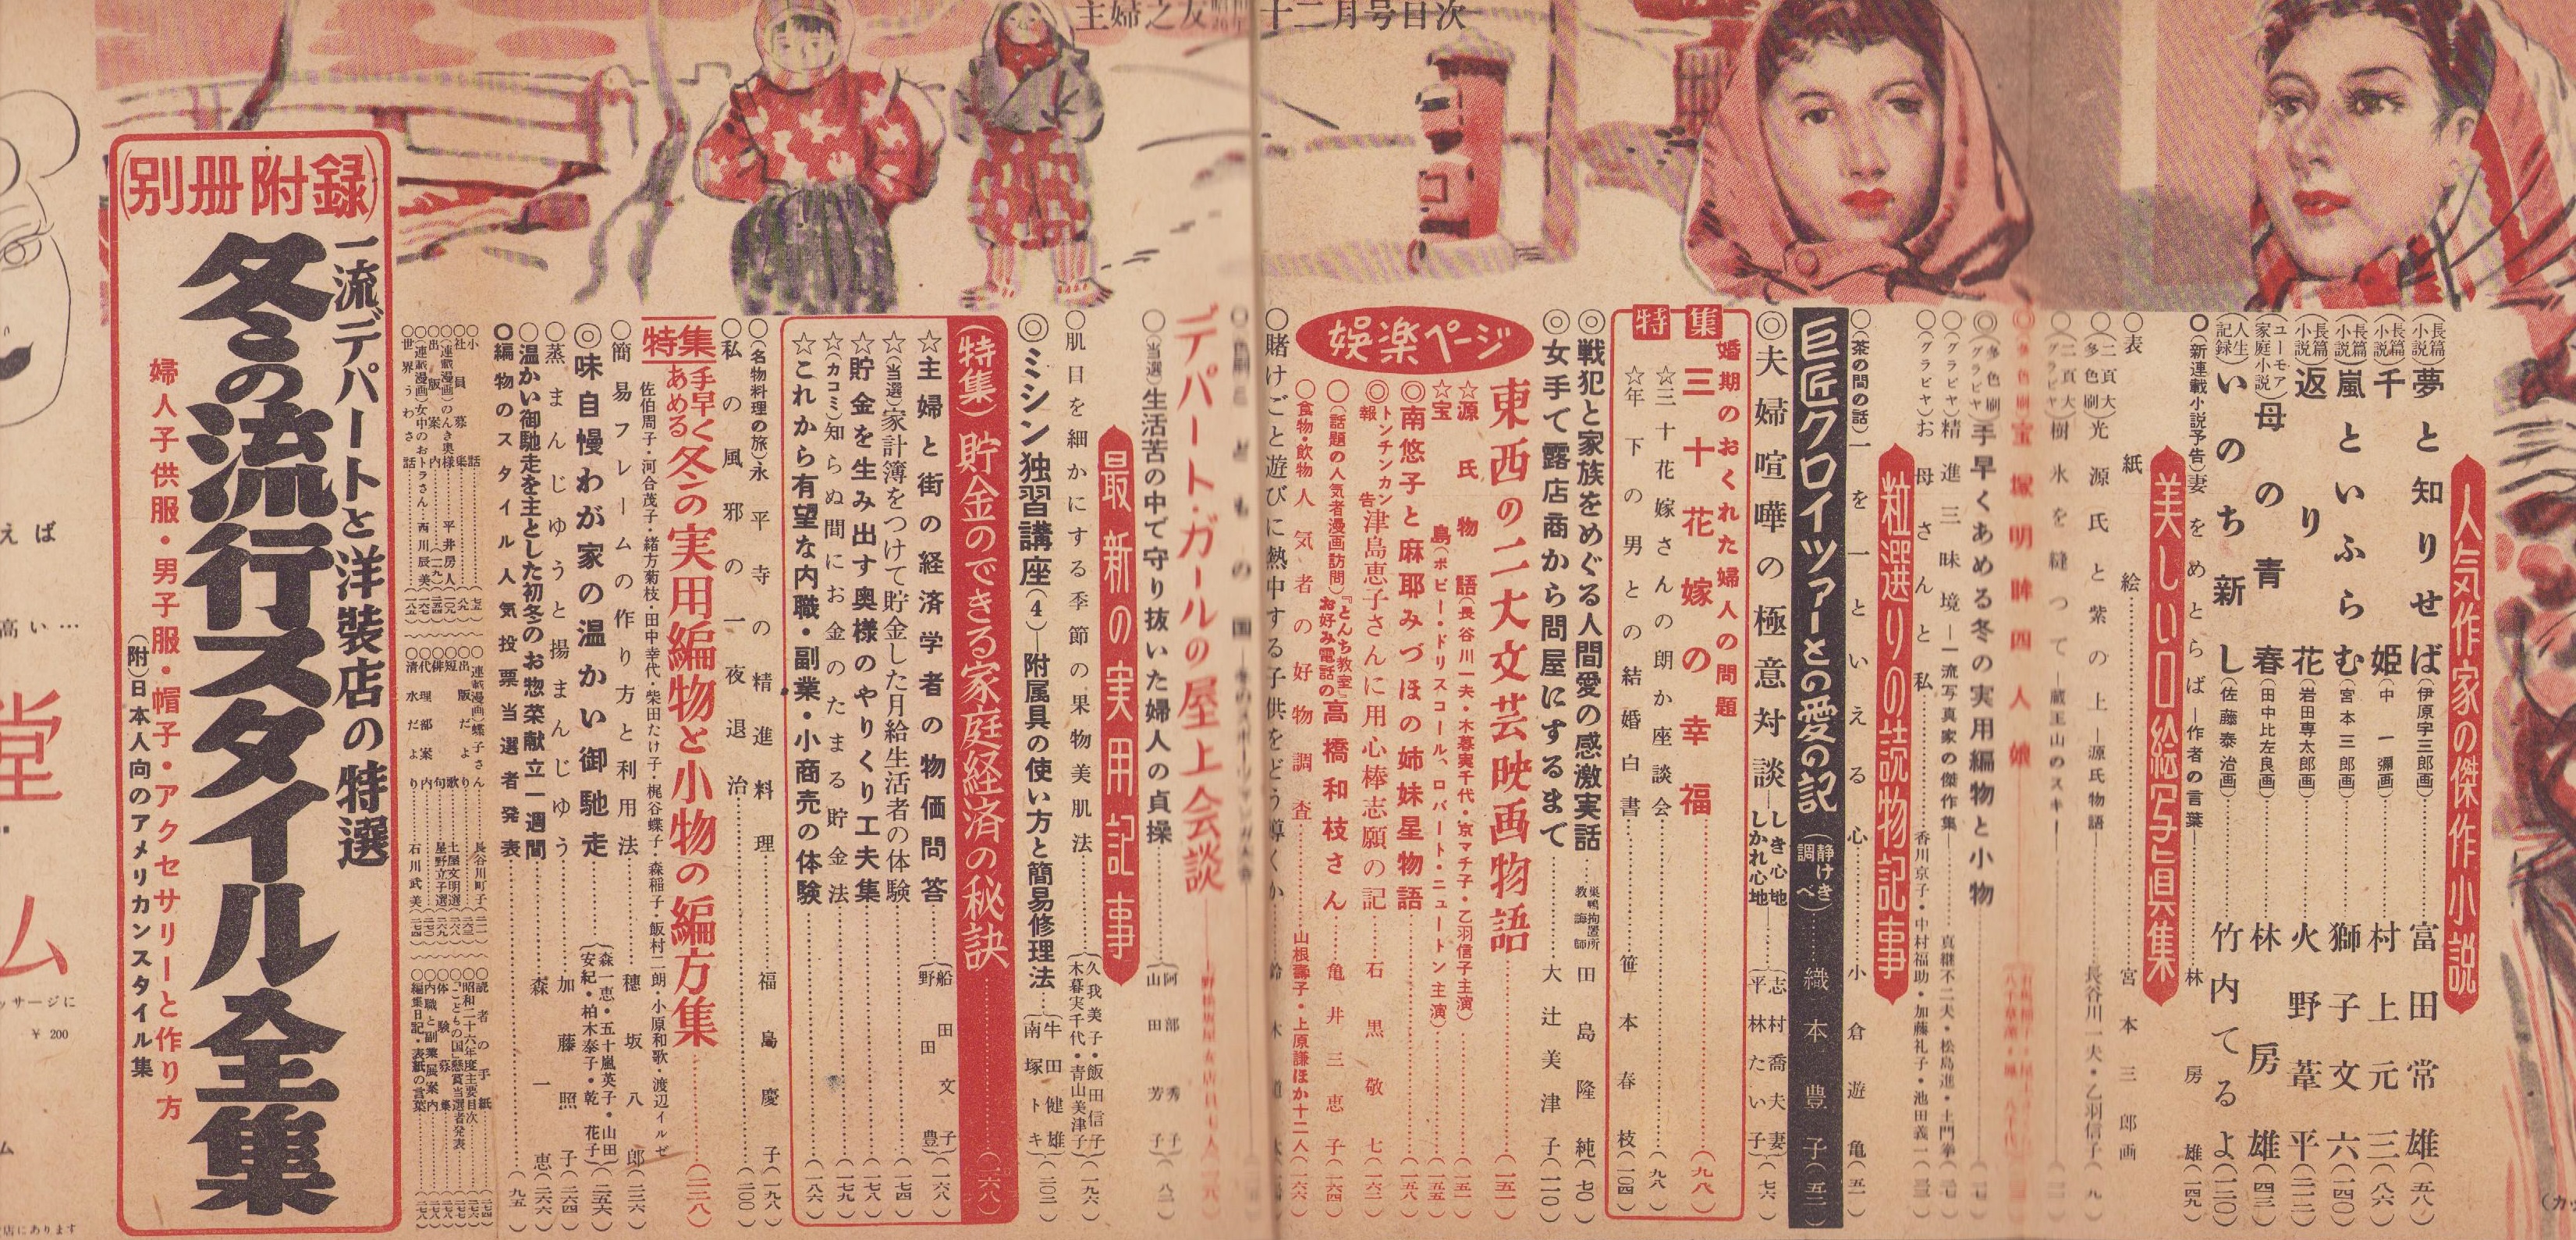 主婦之友
十二月号目次
人気作家の傑作小説
(長篇小説)夢と知りせば(伊原宇三郎画)……富田常雄(五八)
(長篇小説)千姫(中一彌画)……村上元三(八六)
(長篇小説)嵐といふらむ(宮本三郎画)……獅子文六(一四〇)
(長篇小説)返り花(岩田専太郎画)……火野葦平(二一二)
(ユーモア家庭小説)母の青春(田中比左良画)……林房雄(四三)
(人生記録)いのち新し(佐藤泰治画)……竹内てるよ(一二〇)
○(新連載小説予告)妻をめとらば―作者の言葉……林房雄(一四九)
美しい口絵写真集
○表紙絵……宮本三郎画
○(二頁大多色刷)光源氏と紫の上―源氏物語……長谷川一夫・乙羽信子(九)
○(二頁大グラビヤ)樹氷を縫つて―蔵王山のスキー
◎宝塚明眸四人娘
◎(多色刷グラビヤ)手早くあめる冬の実用編物と小物
○(グラビヤ)精進三昧境―一流写真家の傑作集……真継不二夫・松島進・土門拳
○(グラビヤ)お母さんと私……香川京子・中村福助・加藤礼子・池田義一
粒選りの読物記事
○(茶の間の話)一を一といえる心……小倉遊亀(五一)
巨匠クロイツァーとの愛の記(静けき調べ)……織本豊子(五二)
◎夫婦喧嘩の極意対談―しき心地しかれ心地……(志村喬夫妻 平林たい子)(七六)
特集
婚期のおくれた婦人の問題
三十花嫁の幸福……(九八)
☆三十花嫁さんの朗か座談会……(九八)
☆年下の男との結婚白書……笹本春枝(一〇四)
◎戦犯と家族をめぐる人間愛の感激実話……巣鴨拘置所教誨師 田島隆純(七〇)
◎女手で露店商から問屋にするまで……大辻美津子(一一〇)
娯楽ページ
東西の二大文芸映画物語……(一五一)
☆源氏物語(長谷川一夫・木暮実千代・京マチ子・乙羽信子主演)……(一五一)
☆宝島(ボビー・ドリスコール、ロバート・ニュートン主演)……(一五五)
◎南悠子と麻耶みづほの姉妹星物語……(一五八)
◎トンチンカン報告 津島恵子さんに用心棒志願の記……石黒敬七(一六二)
○(話題の人気者漫画訪問)『とんち教室』お好み電話の高橋和枝さん……亀井三恵子(一六四)
○食物・飲物 人気者の好物調査……山根壽子・上原謙ほか十二人(一六六)
○賭けごと遊びに熱中する子供をどう導くか……鈴木道太
デパート・ガールの屋上会談
○(当選)生活苦の中で守り抜いた婦人の貞操……(阿部秀子 山田芳子)(八二)
最新の実用記事
○肌目を細かにする季節の果物美肌法……(久我美子・飯田信子 木暮実千代・青山美津子)(一九六)
◎ミシン独習講座(4)―附属具の使い方と簡易修理法……(牛田健雄 南塚トキ)(二〇二)
(特集)貯金のできる家庭経済の秘訣……(一六八)
☆主婦と街の経済学者の物価問答……(船田文子 野田豊)(一六八)
☆(当選)家計簿をつけて貯金した月給生活者の体験……(一七四)
☆貯金を生み出す奥様のやりくり工夫集……(一七八)
☆(カコミ)知らぬ間にお金のたまる貯金法……(一七九)
☆これから有望な内職・副業・小商売の体験……(一八六)
○(名物料理の旅)永平寺の精進料理……福島慶子(一九八)
○私の風邪の一夜退治……(二〇〇)
特集
手早くあめる冬の実用編物と小物の編方集……(二二八)
佐伯周子・河合茂子・緒方菊枝・田中幸代・柴田たけ子・梶谷蝶子・森稲子・飯村二朗・小原和歌・渡辺イルゼ
○簡易フレームの作り方と利用法……穂坂八郎(二三六)
◎味自慢わが家の温かい御馳走……(森一恵・五十嵐英子・山田 安紀・柏木泰子・乾花子)(二五六)
○蒸まんじゆうと揚まんじゆう……加藤照子(二六四)
○温かい御馳走を主とした初冬のお惣菜献立一週間……森一恵(二六六)
○編物のスタイル人気投票当選者発表……(九五)
○小話……(七五)
○社員募集……(八九)
○(連載漫画)のんき奥様……平井房人(一〇九)
○出版案内
○(連載漫画)女中のおトラさん……西川辰美
○世界うわさ話
○(連載漫画)蝶子さん……長谷川町子
○出版だより
○短歌……土屋文明選
○俳句……星野立子選
○代理部案内
○清水だより……石川武美
○読者の手紙
○昭和二十六年度主要目次
○「こどもの国」懸賞当選者発表
○体験募集
○内職と副業展案内
○編集日記・表紙の言葉
(別冊附録)
一流デパートと洋装店の特選
冬の流行スタイル全集
婦人子供服・男子服・帽子・アクセサリーと作り方
(附)日本人向のアメリカンスタイル集
えば
高い…
堂
ム
ッサージに
￥200
店にあります